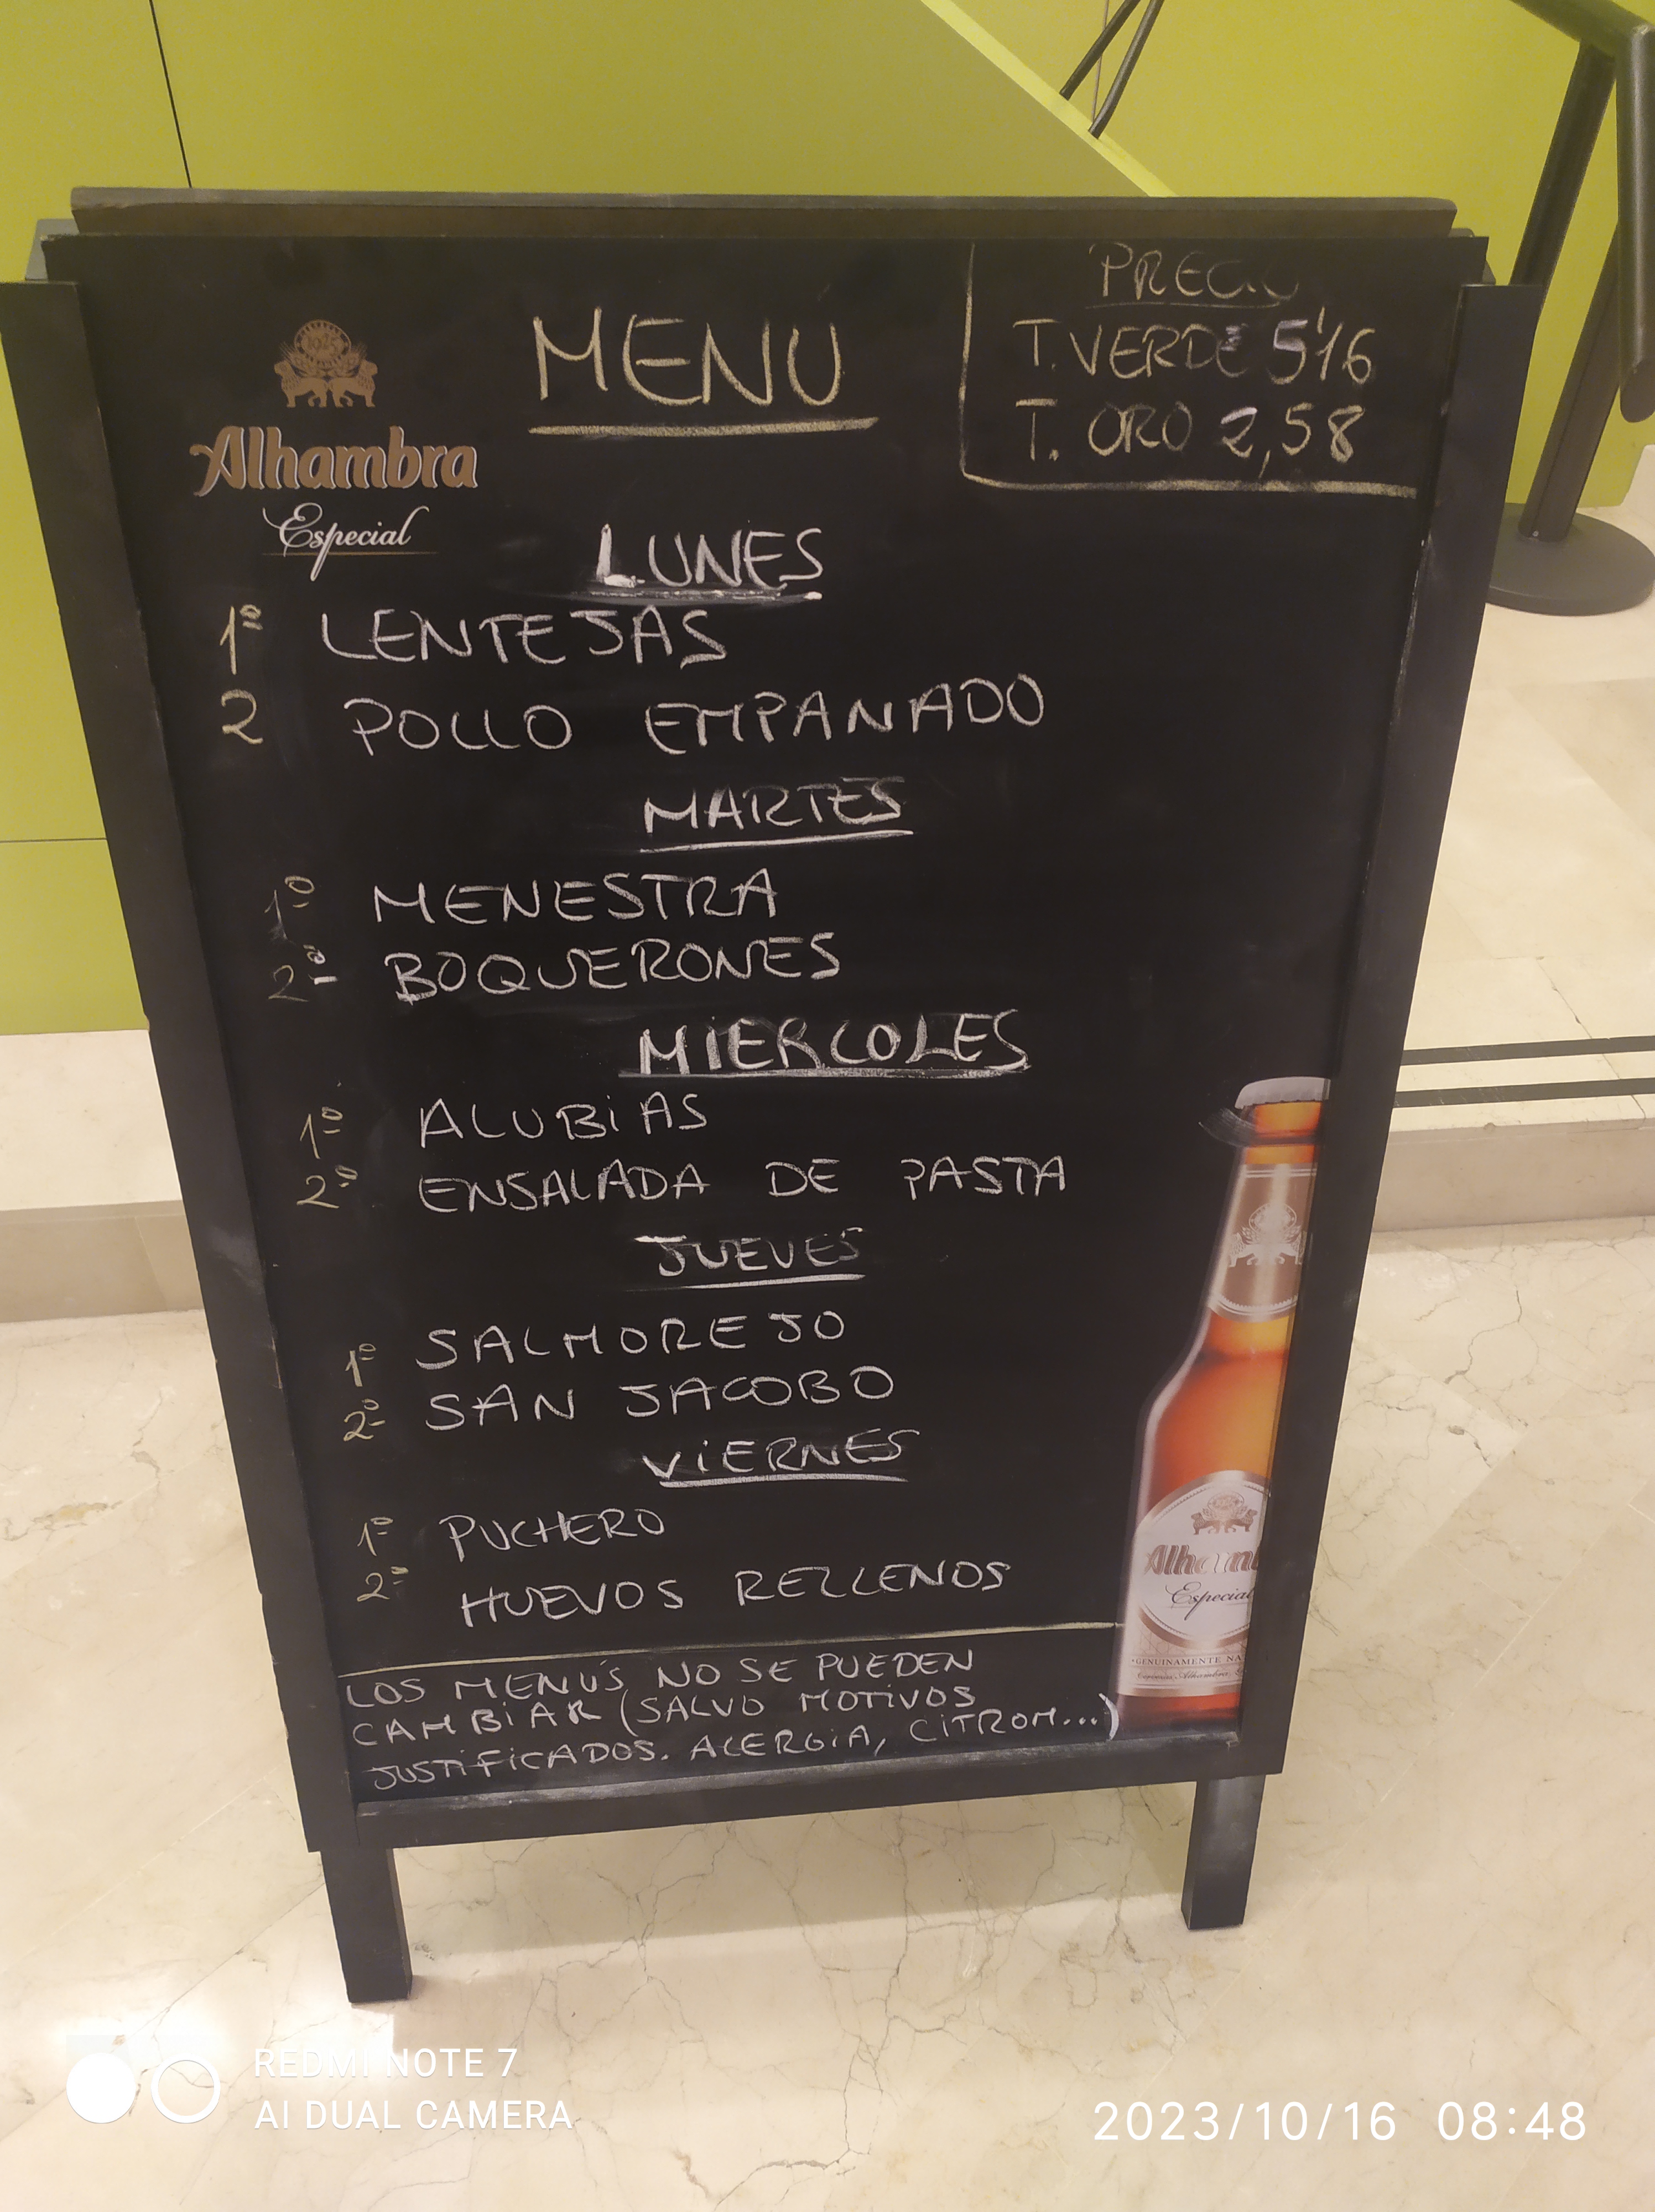 MENU
PRECIO
T. VERDE 5'16
T. ORO 2,58
Alhambra
Especial
LUNES
1º LENTEJAS
2 POLLO EMPANADO
MARTES
1º MENESTRA
2º BOQUERONES
MIERCOLES
1º ALUBIAS
2º ENSALADA DE PASTA
JUEVES
1º SALMOREJO
2º SAN JACOBO
VIERNES
1º PUCHERO
2º HUEVOS RELLENOS
LOS MENU'S NO SE PUEDEN
CAMBIAR (SALVO MOTIVOS
JUSTIFICADOS. ALERGIA, CITROM...)
Especial
·GENUINAMENTE
REDMI NOTE 7
AI DUAL CAMERA
2023/10/16 08:48